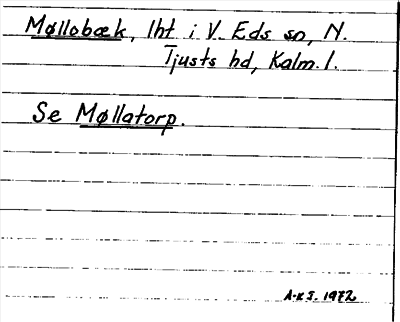 Møllobæk, lht i V. Eds sn, N.
Tjusts hd, Kalm. l.
Se Møllatorp.
A-K S. 1972